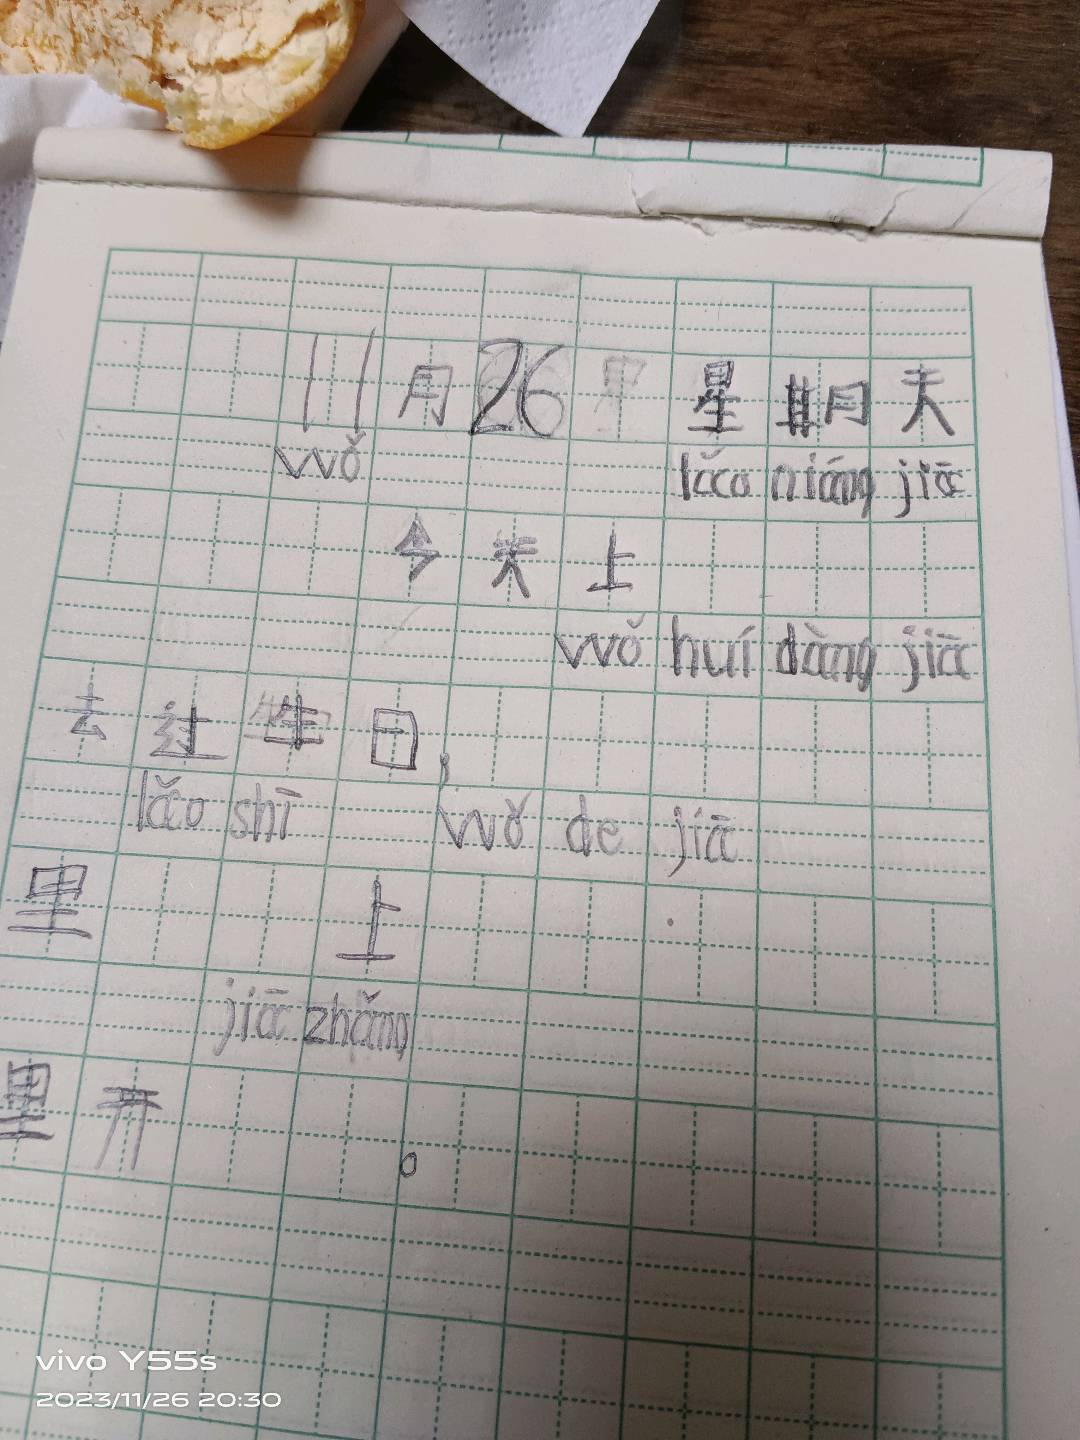 11月26日 星期天
wǒ lǎo niáng jiā
今天上
wǒ huí dàng jiā
去过生日,
lǎo shī wǒ de jiā
里 上
jiā zhǎng
里开 。
vivo Y55s
2023/11/26 20:30